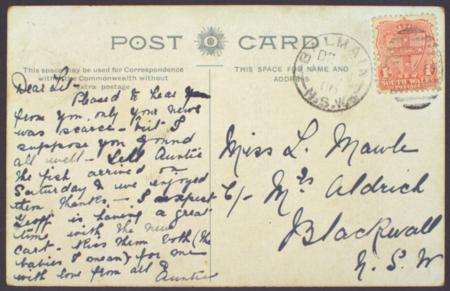 POST CARD
This space may be used for Correspondence
within the Commonwealth without
extra postage
THIS SPACE FOR NAME AND
ADDRESS
BALMAIN
N.S.W
NEW
SOUTH WALES
POSTAGE
Dear Lil
Pleased to hear
from you, only your news
was scarce - but I
suppose you found
all well - Tell Auntie
the fish arrived on
Saturday & we enjoyed
them thanks - I expect
is having a great
time with the new
cart - Kiss them both (the
babies I mean) for me
with love from all
Auntie
Miss L. Mawle
C/- Mrs Aldrich
Blackwall
N. S. W